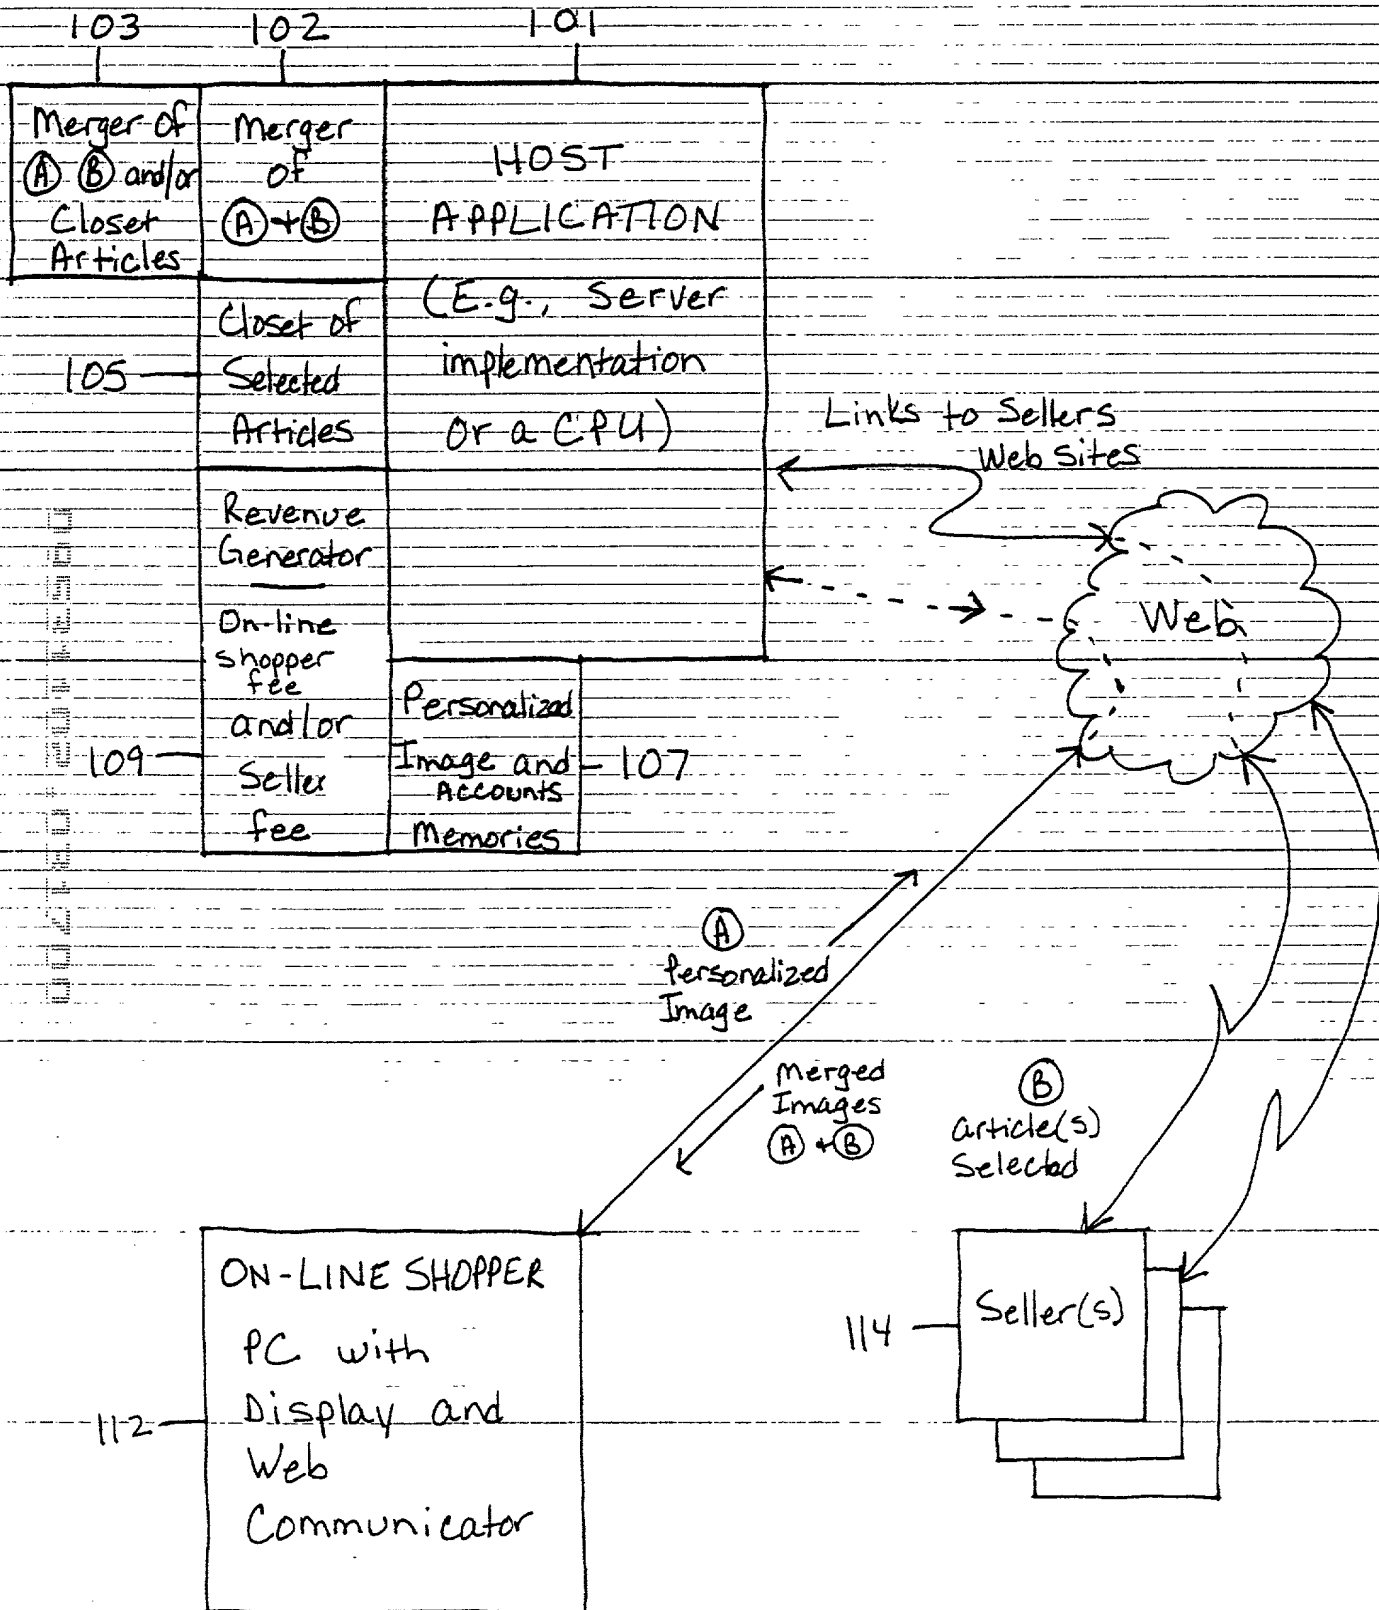 103
102
101
Merger of
(A) (B) and/or
Closet
Articles
Merger
of
(A)+(B)
HOST
APPLICATION
(E.g., Server
implementation
or a CPU)
105
Closet of
Selected
Articles
Links to Sellers
Web Sites
Revenue
Generator
On-line
shopper
fee
and/or
Seller
fee
109
Personalized
Image and
Accounts
Memories
107
Web
(A)
Personalized
Image
Merged
Images
(A)+(B)
(B)
article(s)
Selected
ON-LINE SHOPPER
PC with
Display and
Web
Communicator
112
Seller(s)
114